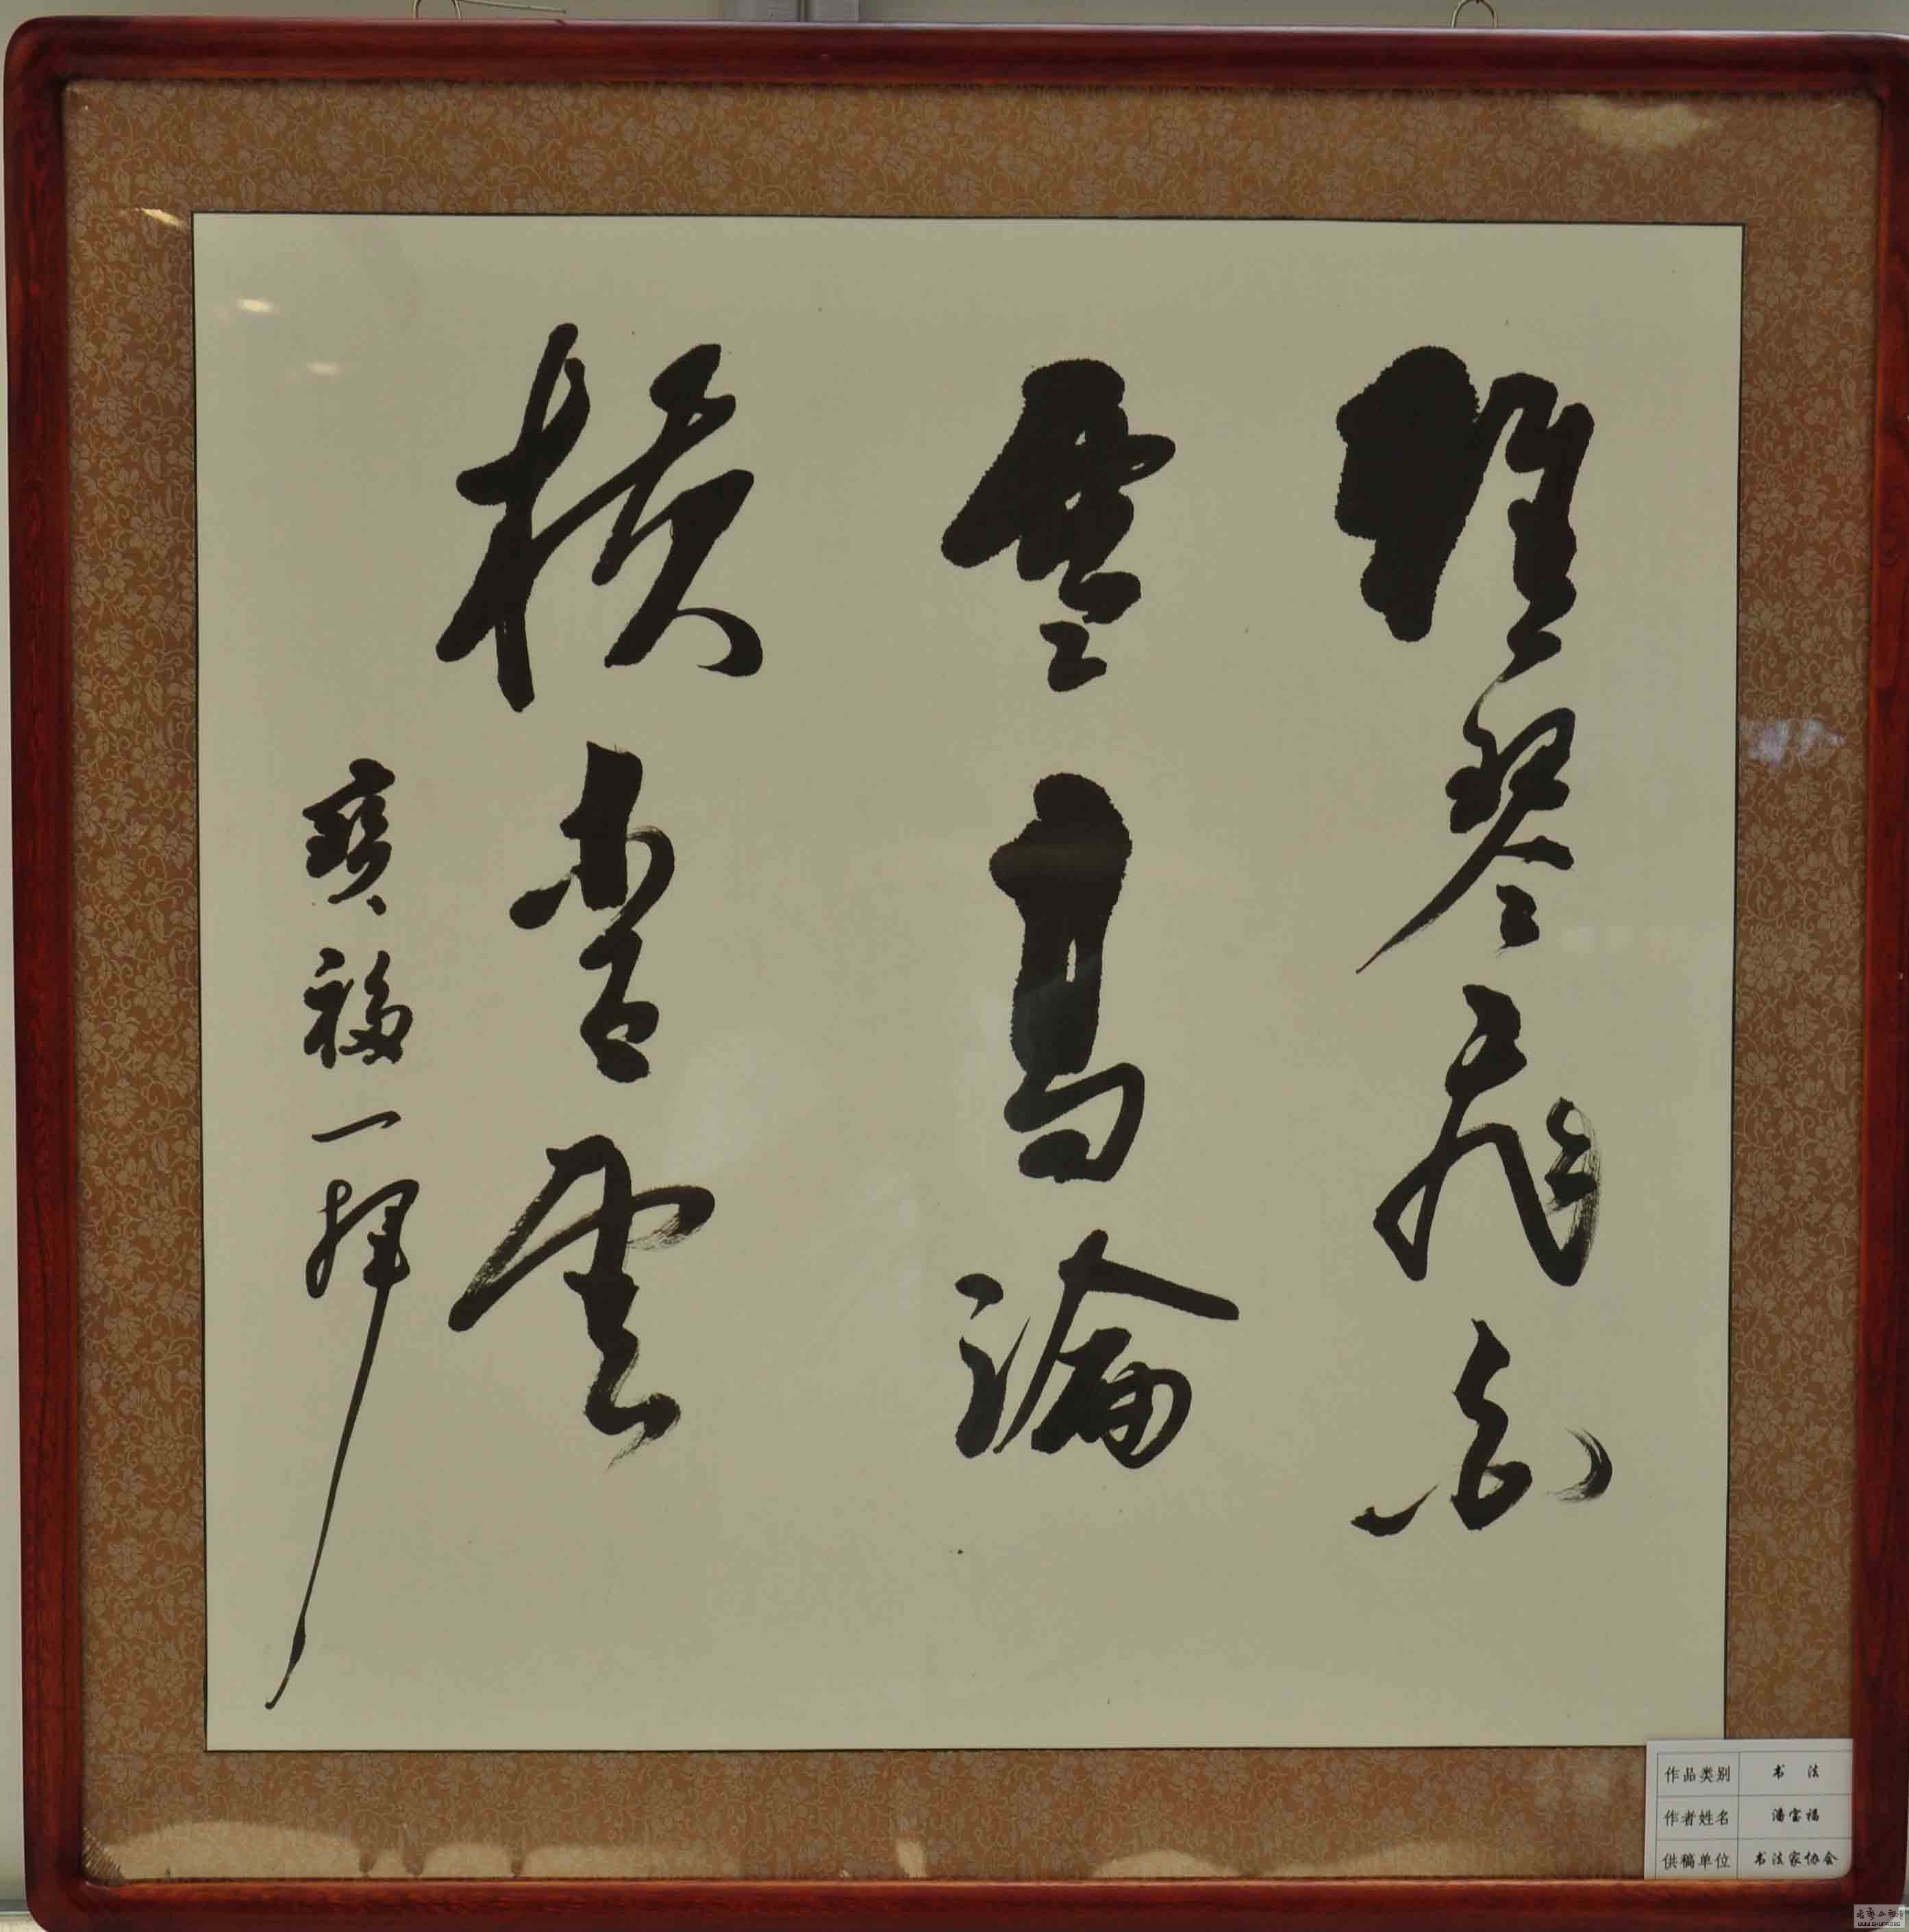 雅琴飛白
雪高論
横青雲
寶福一揮
作品类别 书 法
作者姓名 潘宝福
供稿单位 书法家协会